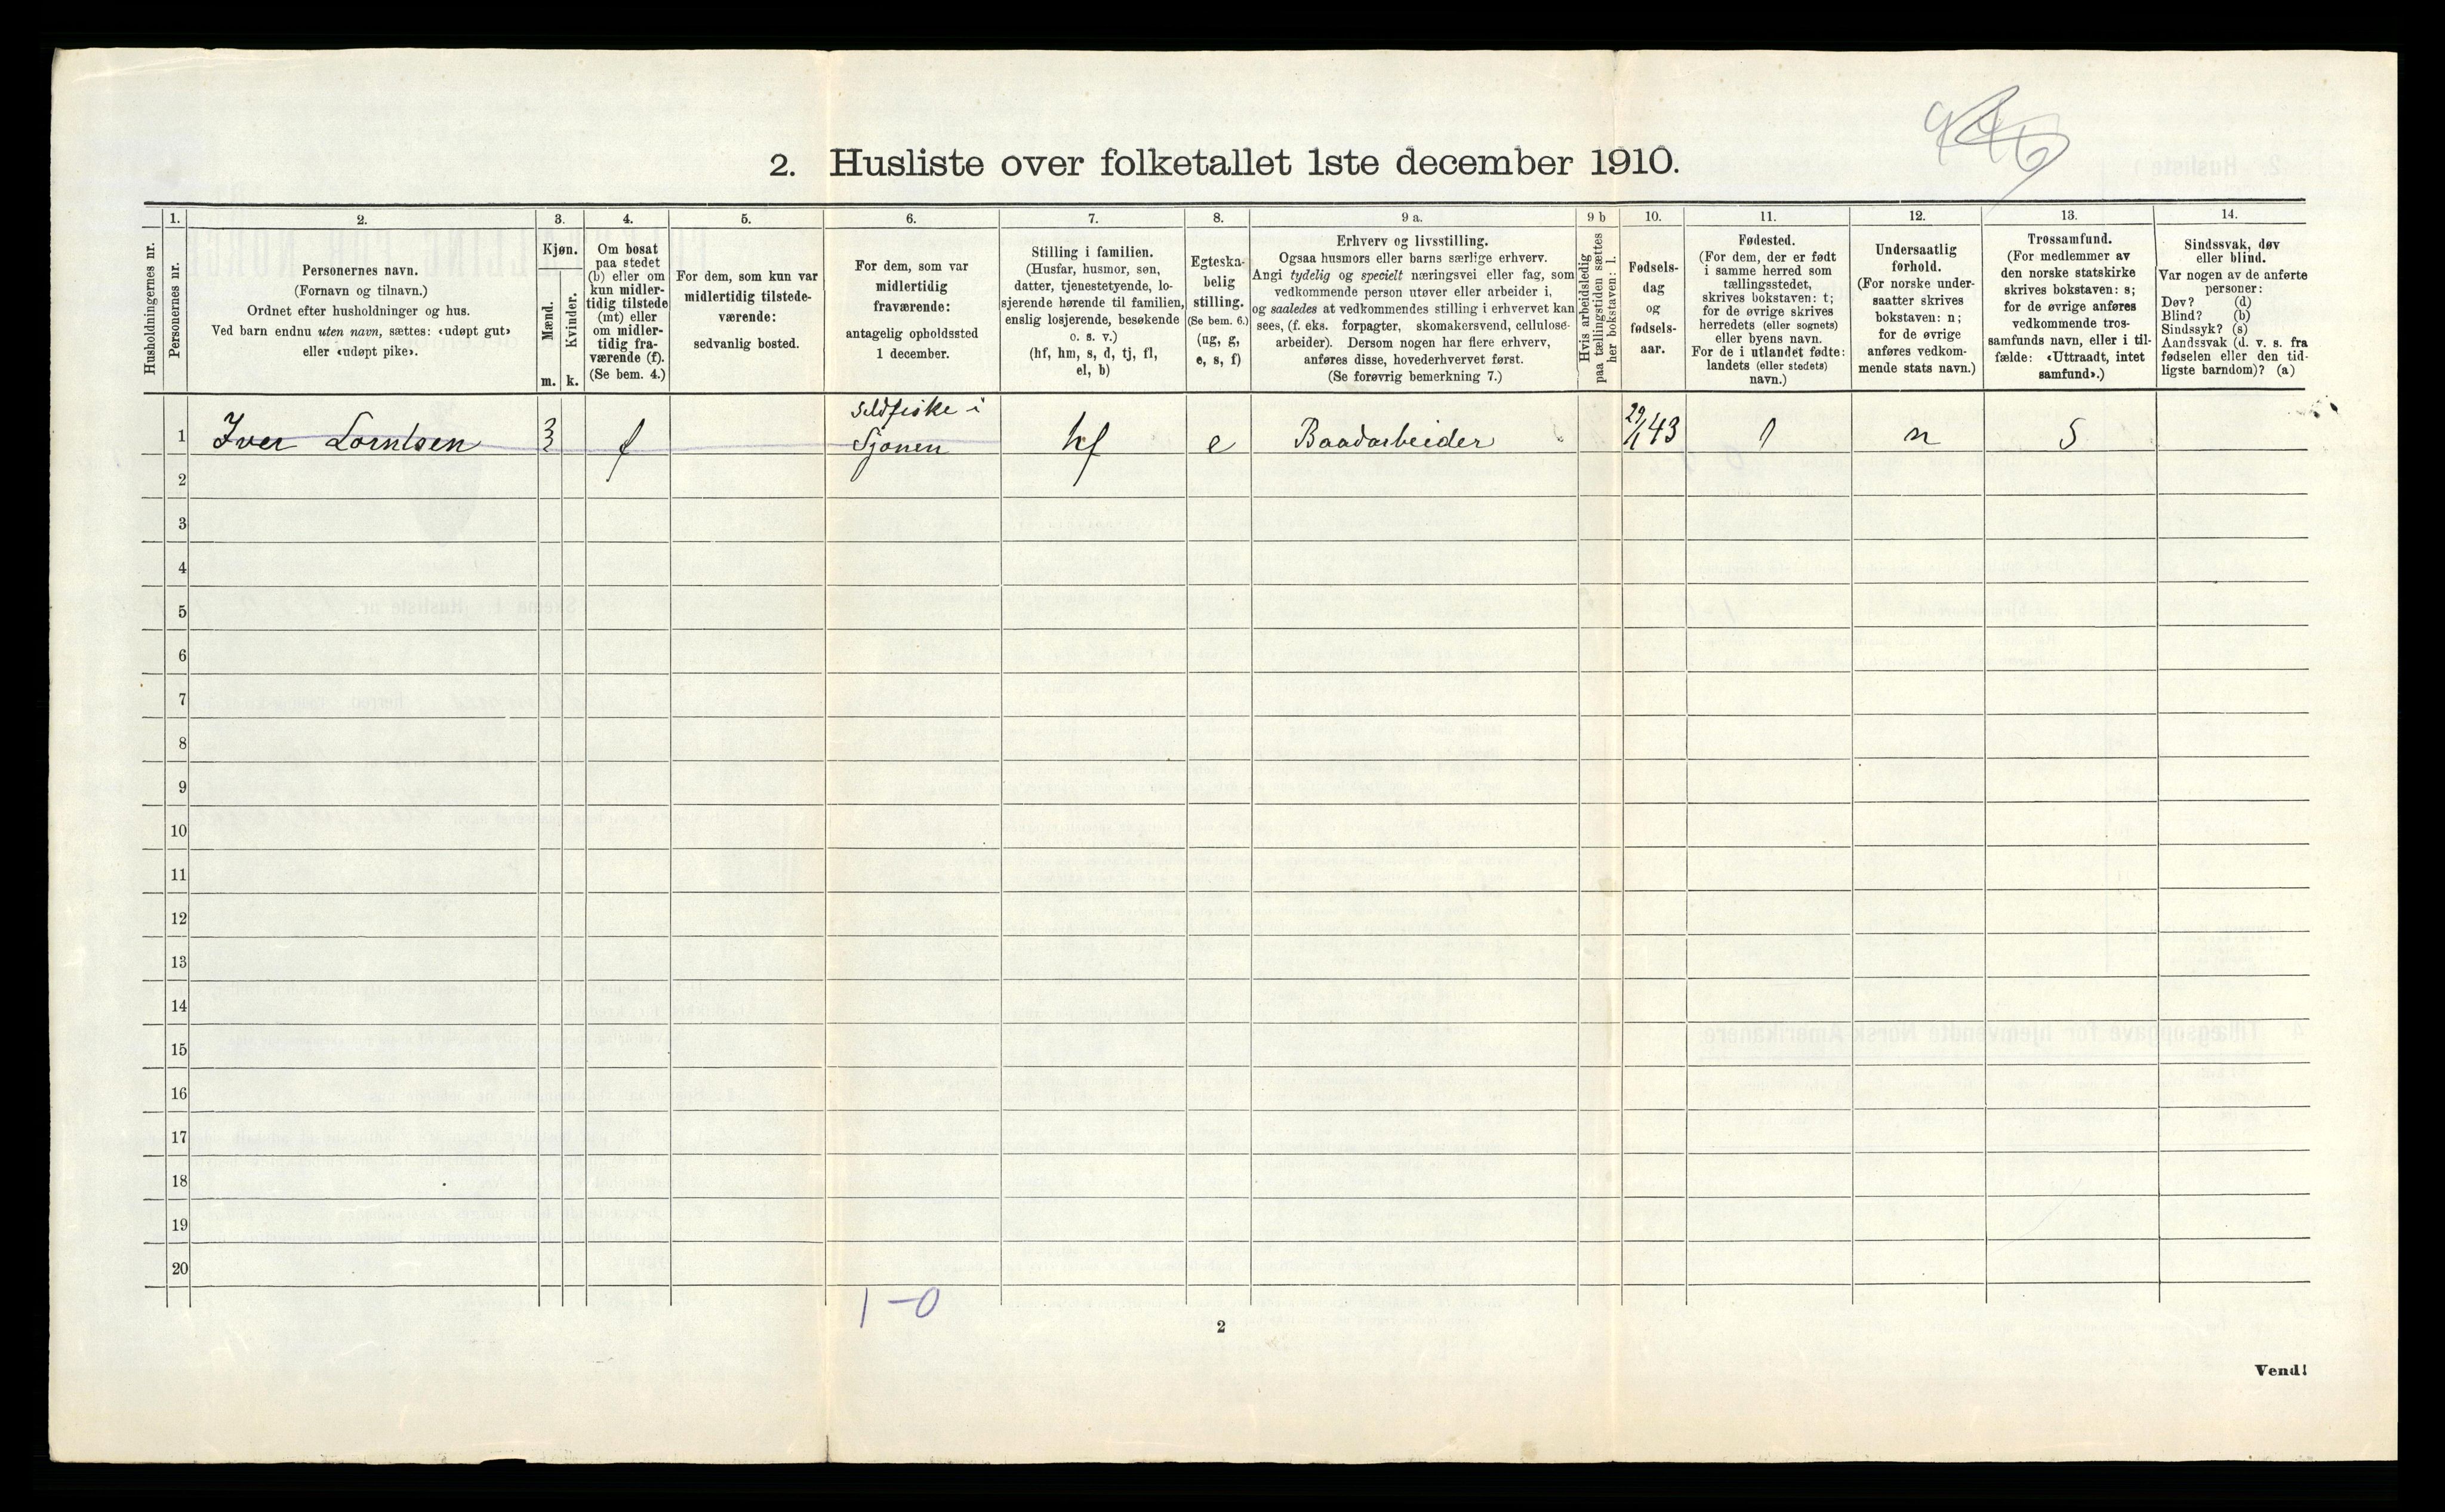 2. Husliste over folketallet 1ste december 1910.
Husholdningernes nr.
1.
Personernes nr.
2.
Personernes navn.
(Fornavn og tilnavn.)
Ordnet efter husholdninger og hus.
Ved barn endnu uten navn, sættes: «udøpt gut»
eller «udøpt pike».
3.
Kjøn.
Mænd.
Kvinder.
m. k.
4.
Om bosat
paa stedet
(b) eller om
kun midler-
tidig tilstede
(mt) eller
om midler-
tidig fra-
værende (f).
(Se bem. 4.)
5.
For dem, som kun var
midlertidig tilstede-
værende:
sedvanlig bosted.
6.
For dem, som var
midlertidig
fraværende:
antagelig opholdssted
1 december.
7.
Stilling i familien.
(Husfar, husmor, søn,
datter, tjenestetyende, lo-
sjerende hørende til familien,
enslig losjerende, besøkende
o. s. v.)
(hf, hm, s, d, tj, fl,
el, b)
8.
Egteska-
belig
stilling.
(Se bem. 6.)
(ug, g,
e, s, f)
9 a.
Erhverv og livsstilling.
Ogsaa husmors eller barns særlige erhverv.
Angi tydelig og specielt næringsvei eller fag, som
vedkommende person utøver eller arbeider i,
og saaledes at vedkommendes stilling i erhvervet kan
sees, (f. eks. forpagter, skomakersvend, cellulose-
arbeider). Dersom nogen har flere erhverv,
anføres disse, hovederhvervet først.
(Se forøvrig bemerkning 7.)
9 b
Hvis arbeidsledig
paa tællingstiden sættes
her bokstaven: l.
10.
Fødsels-
dag
og
fødsels-
aar.
11.
Fødested.
(For dem, der er født
i samme herred som
tællingsstedet,
skrives bokstaven: t;
for de øvrige skrives
herredets (eller sognets)
eller byens navn.
For de i utlandet fødte:
landets (eller stedets)
navn.)
12.
Undersaatlig
forhold.
(For norske under-
saatter skrives
bokstaven: n;
for de øvrige
anføres vedkom-
mende stats navn.)
13.
Trossamfund.
(For medlemmer av
den norske statskirke
skrives bokstaven: s;
for de øvrige anføres
vedkommende tros-
samfunds navn, eller i til-
fælde: «Uttraadt, intet
samfund».)
14.
Sindssvak, døv
eller blind.
Var nogen av de anførte
personer:
Døv? (d)
Blind? (b)
Sindssyk? (s)
Aandssvak (d. v. s. fra
fødselen eller den tid-
ligste barndom)? (a)
Sildfiske i
1 Iver Lorntsen f Sjonen hf e Baadarbeider 29/1 43 n S
2
3
4
5
6
7
8
9
10
11
12
13
14
15
16
17
18
19
20
1-0
2
Vend!